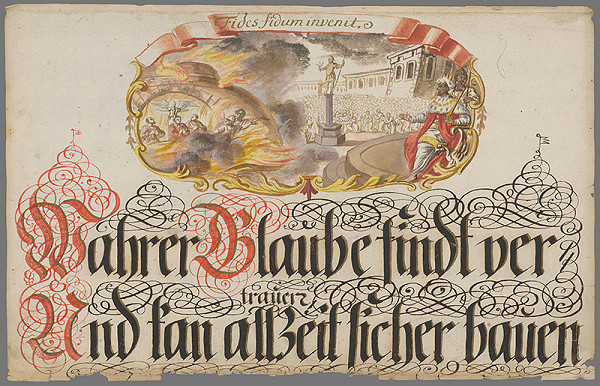 Fides fidum invenit.
Wahrer Glaube findt ver
trauen
Und kan allZeit sicher bauen